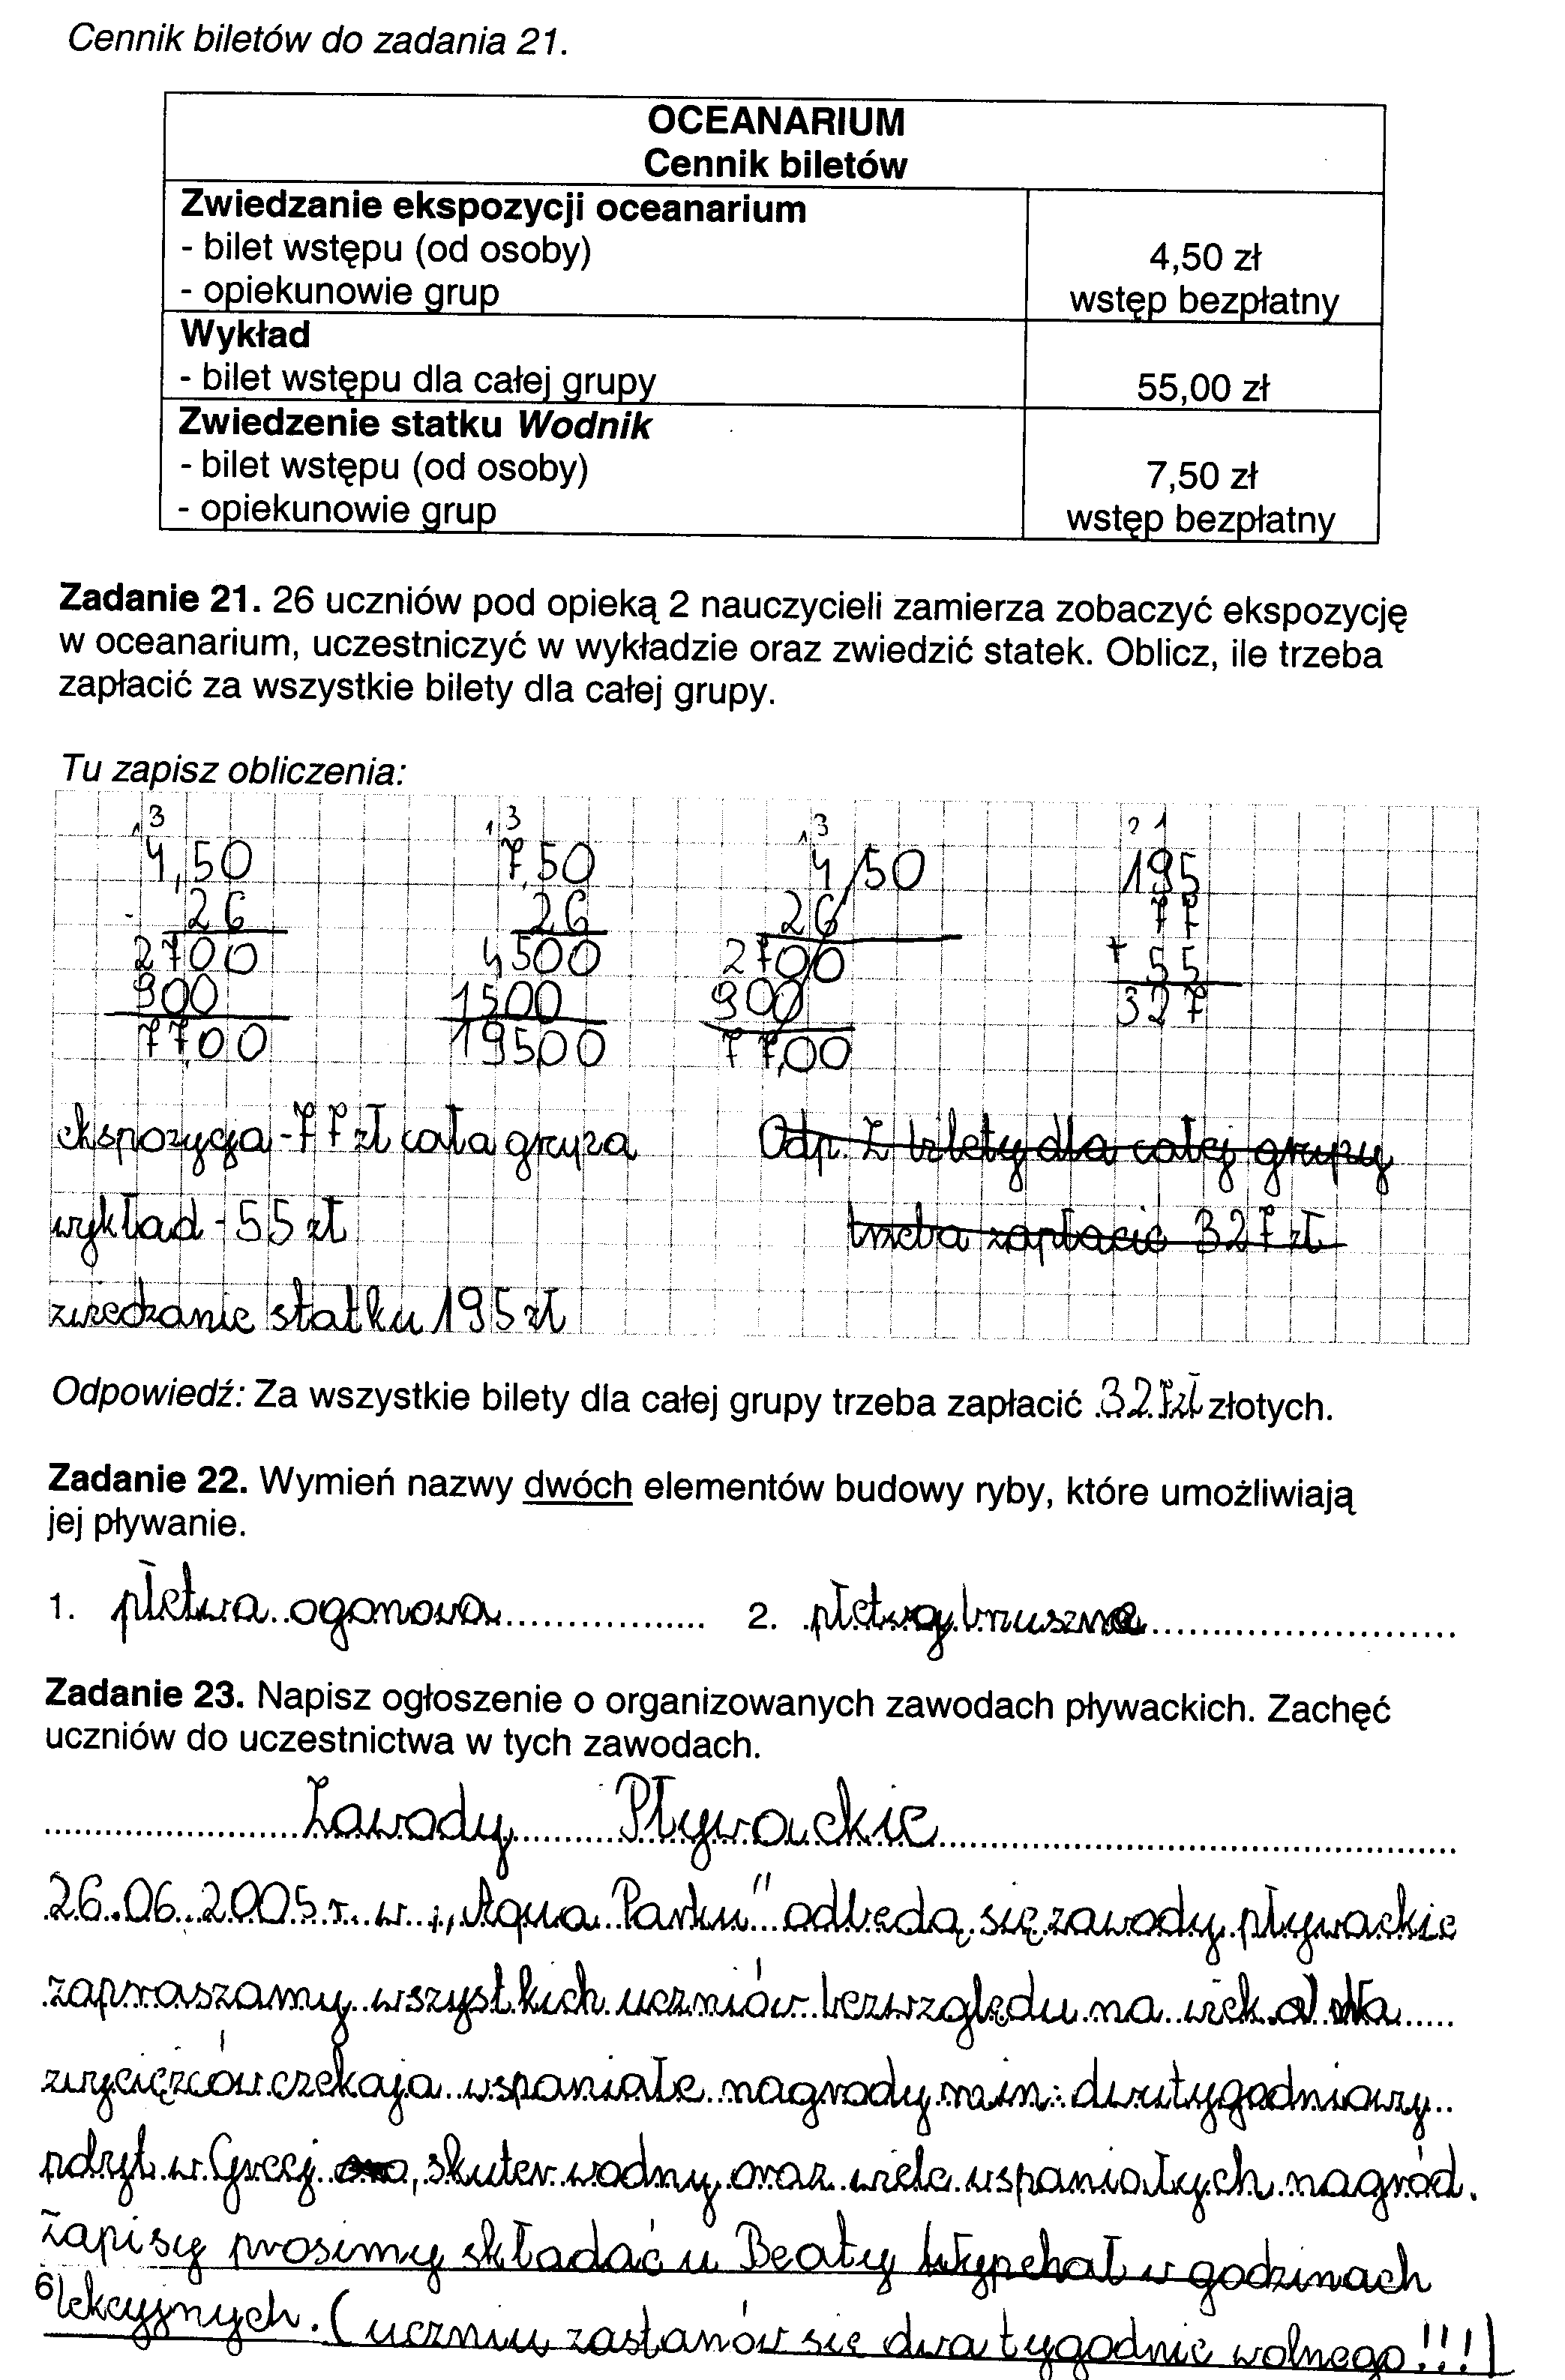 Cennik biletów do zadania 21.
OCEANARIUM
Cennik biletów
Zwiedzanie ekspozycji oceanarium
- bilet wstępu (od osoby) 4,50 zł
- opiekunowie grup wstęp bezpłatny
Wykład
- bilet wstępu dla całej grupy 55,00 zł
Zwiedzenie statku Wodnik
- bilet wstępu (od osoby) 7,50 zł
- opiekunowie grup wstęp bezpłatny
Zadanie 21. 26 uczniów pod opieką 2 nauczycieli zamierza zobaczyć ekspozycję
w oceanarium, uczestniczyć w wykładzie oraz zwiedzić statek. Oblicz, ile trzeba
zapłacić za wszystkie bilety dla całej grupy.
Tu zapisz obliczenia:
13 13 13 21
4,50 7,50 4,50 195
· 26 26 26 77
2700 4500 2700 + 55
900 1500 900 327
77,00 195,00 77,00
ekspozycja - 77 zł cała grupa Odp. Z bilety dla całej grupy
wykład - 55 zł trzeba zapłacić 327 zł
zwiedzanie statku 195 zł
Odpowiedź: Za wszystkie bilety dla całej grupy trzeba zapłacić 327zł złotych.
Zadanie 22. Wymień nazwy dwóch elementów budowy ryby, które umożliwiają
jej pływanie.
1. płetwa ogonowa 2. płetwy bruszne
Zadanie 23. Napisz ogłoszenie o organizowanych zawodach pływackich. Zachęć
uczniów do uczestnictwa w tych zawodach.
Zawody Pływackie
26.06.2005 r. w ,,Aqua Parku" odbędą się zawody pływackie
zapraszamy wszystkich uczniów bezwzględu na wiek. dla
zwycięzców czekaja wspaniałe nagrody min: dwutygodniowy
pdzyt w Grecj, skuter wodny oraz wiele wspaniałych nagród.
Zapisy prosimy składać u Beaty w godzinach
lekcyjnych. (uczniu zastanów się dwa tygodnie wolnego!!!)
6